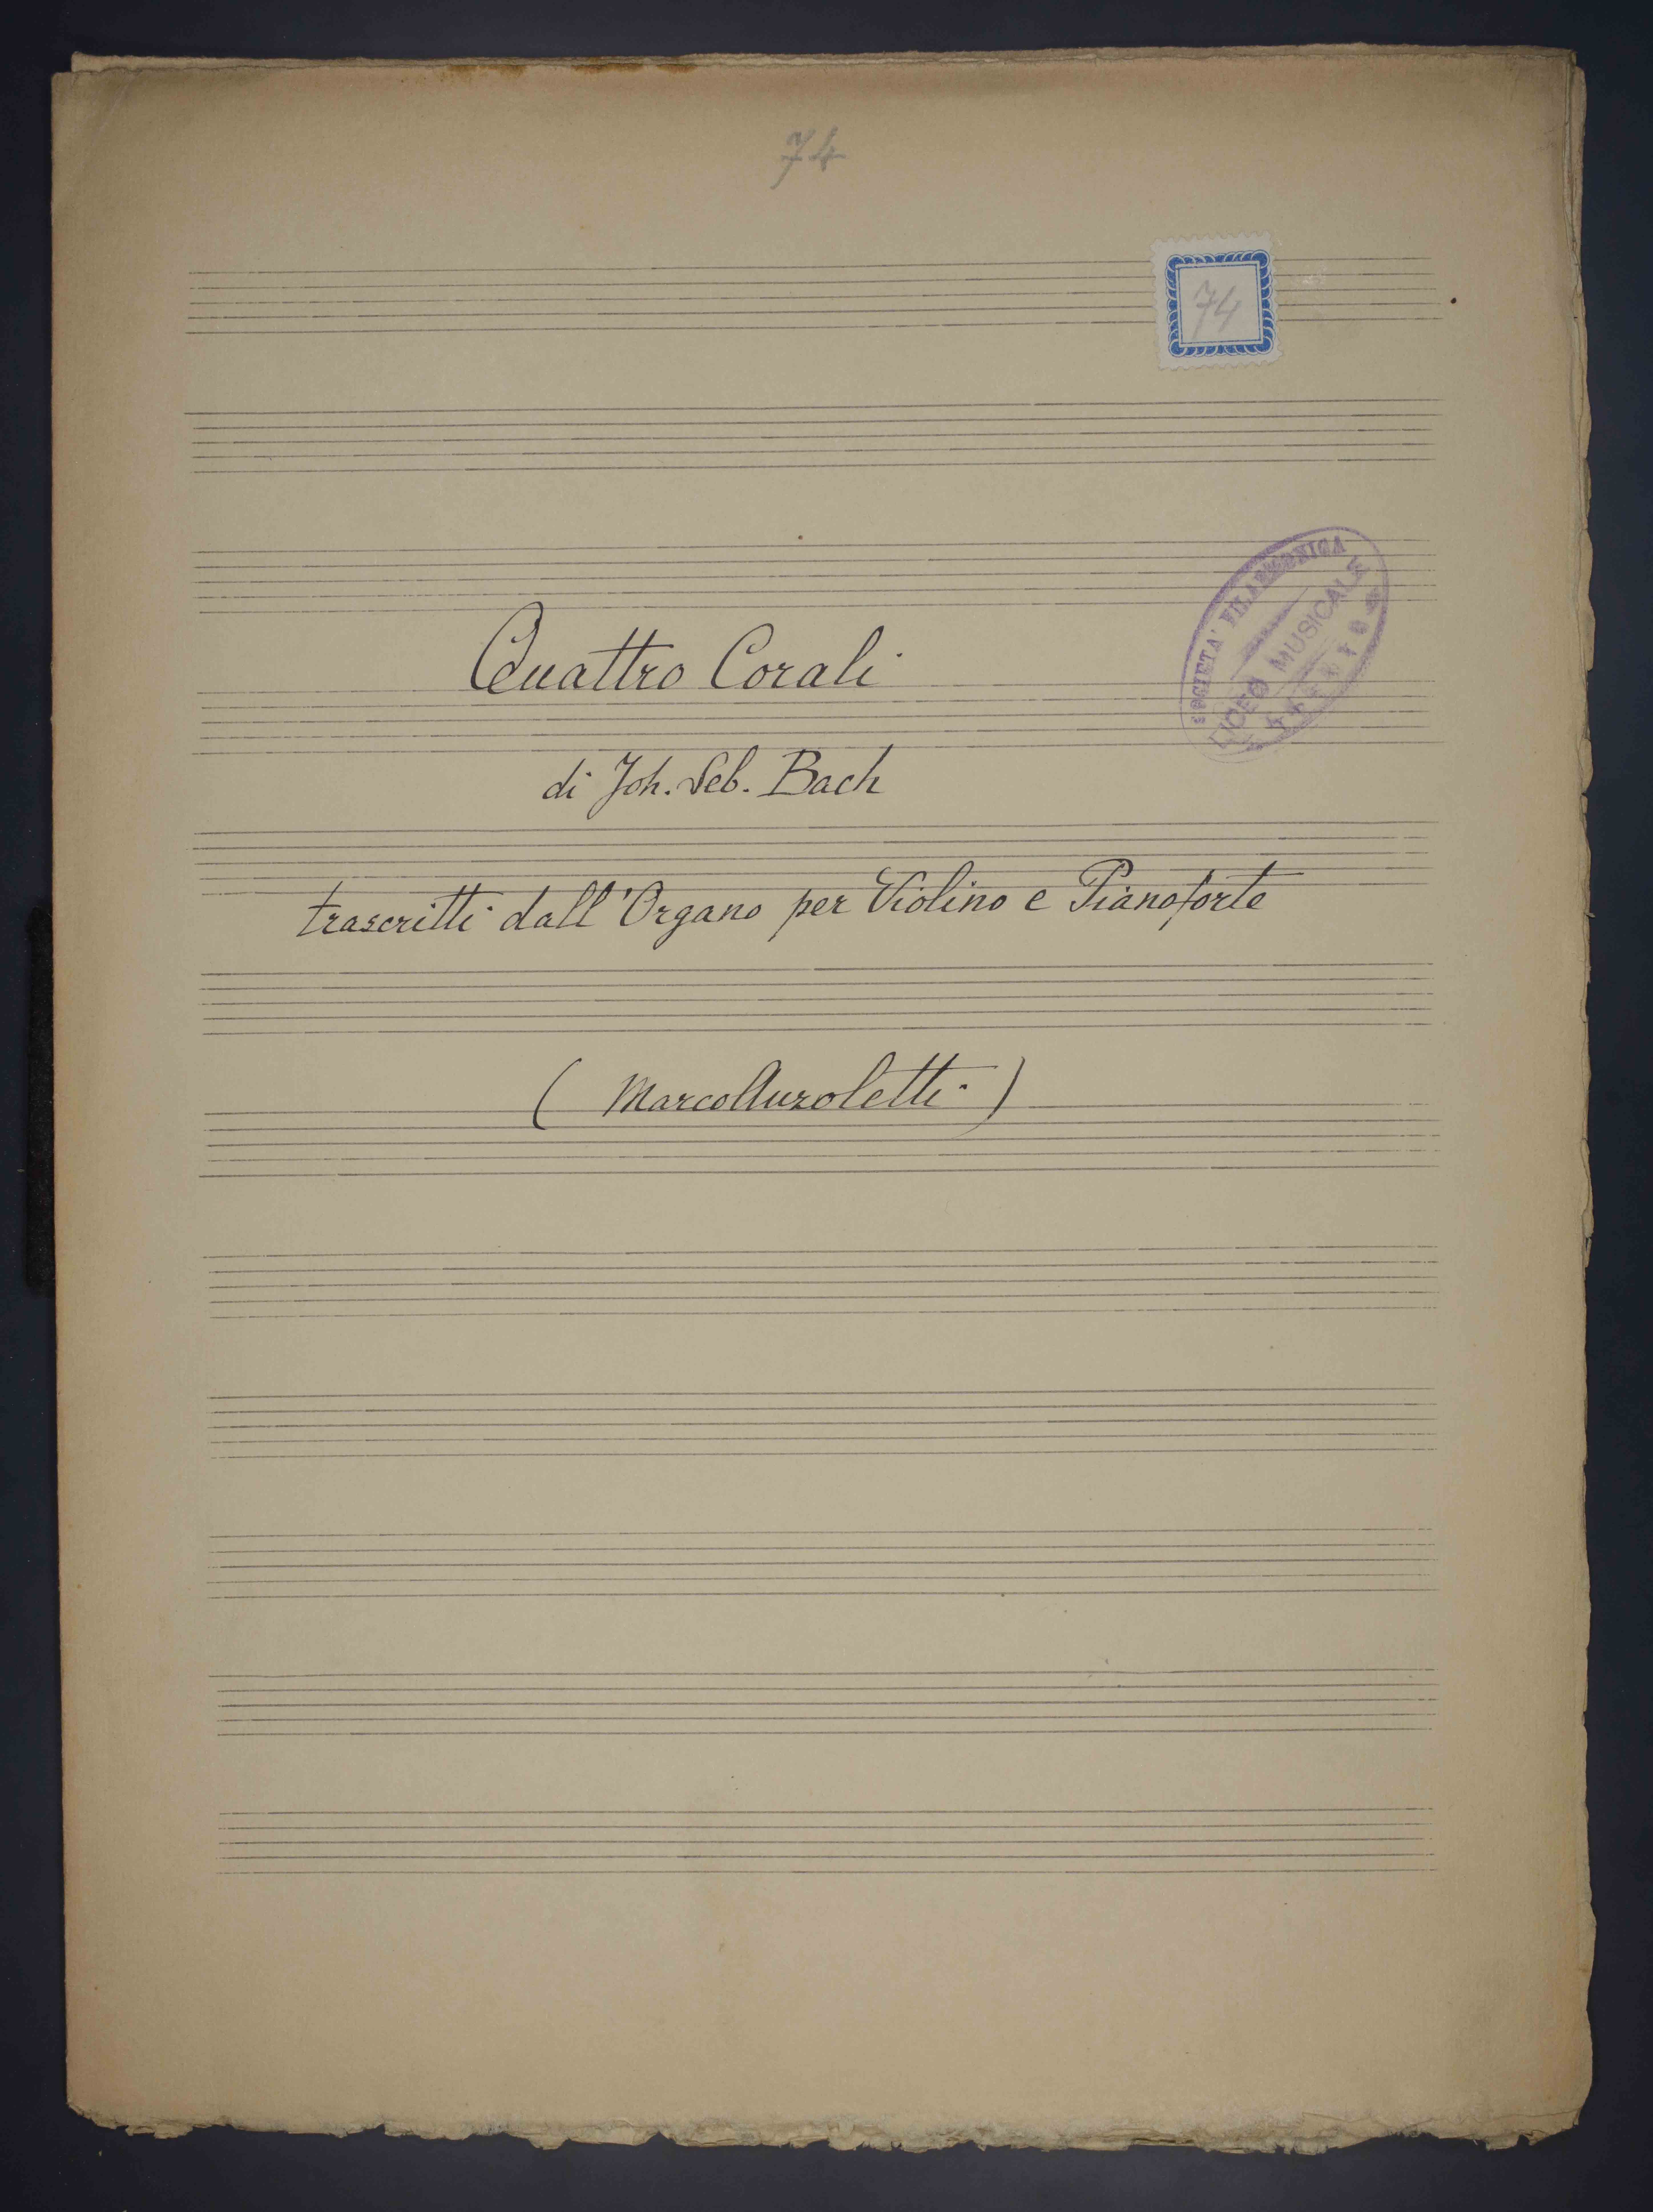 74
74
SOCIETA' FILARMONICA
LICEO MUSICALE
TRENTO
Quattro Corali
di Joh. Seb. Bach
trascritti dall'Organo per Violino e Pianoforte
( Marco Anzoletti )